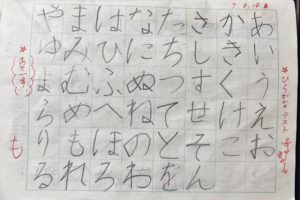 ひらがなテスト
あいうえお
かきくけこ
さしすせそん
たちつてとを
なにぬねのわ
はひふへほろ
まみむめもれ
やゆよらりる
も